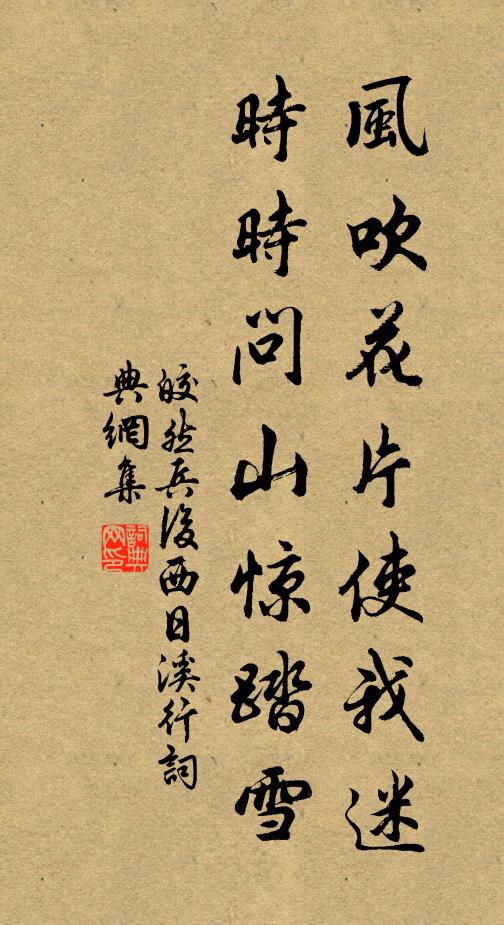 風吹花片使我迷
時時問山惊踏雪
皎然兵後西日溪行詞
典網集
詞典網印